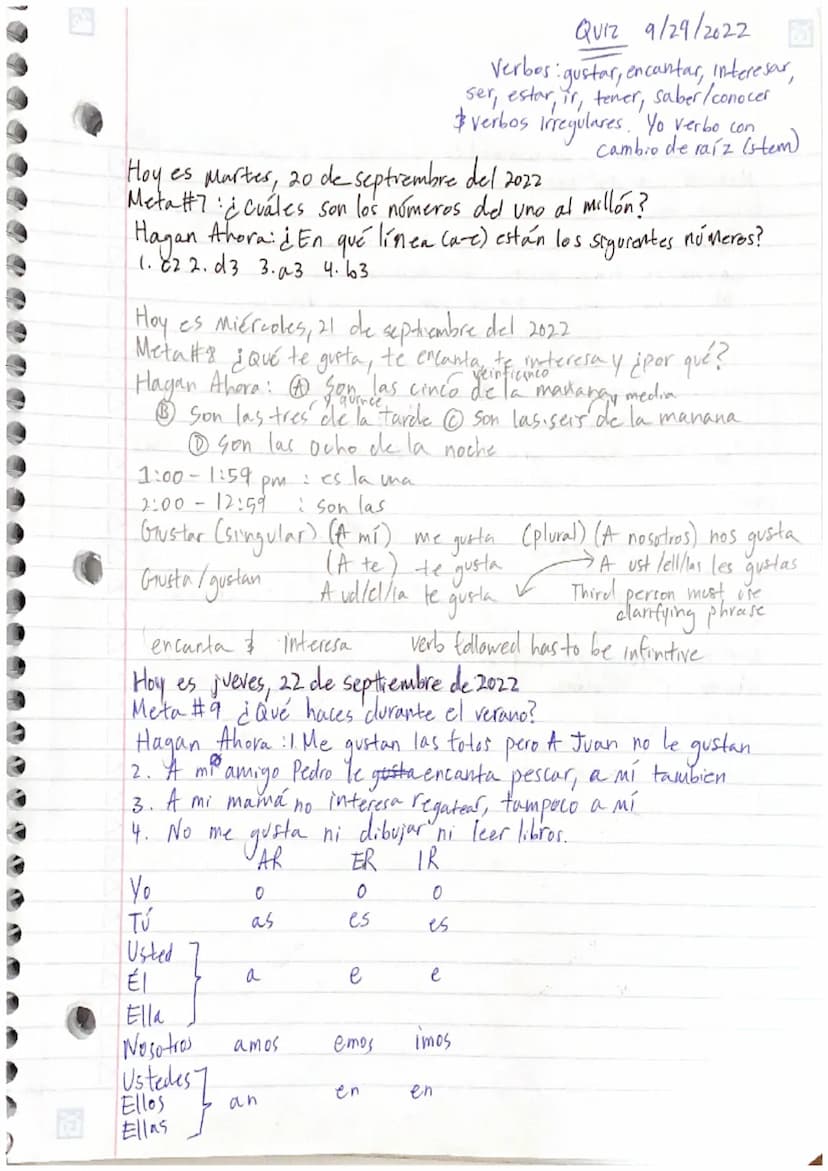 QUIZ 9/29/2022
Verbos: gustar, encantar, interesar,
ser, estar, ir, tener, saber/conocer
& verbos irregulares. Yo verbo con
cambio de raíz (stem)
Hoy es Martes, 20 de septiembre del 2022
Meta#7: ¿Cuáles son los números del uno al millón?
Hagan Ahora: ¿En qué línea (a-c) están los siguientes números?
1. c2 2. d3 3. a3 4. b3
Hoy es Miércoles, 21 de septiembre del 2022
Meta#8 ¿Qué te gusta, te encanta, te interesa y ¿por qué?
veinficinco
Hagan Ahora: Ⓐ Son las cinco de la manana y media
y quince
Ⓑ Son las tres de la tarde Ⓒ Son las seis de la manana
Ⓓ Son las ocho de la noche
1:00 - 1:59 pm : es la una
2:00 - 12:59 : son las
Gustar (singular) (A mí) me gusta (plural) (A nosotros) nos gusta
(A te) te gusta → A ust/ell/las les gustas
Gusta/gustan A ud/el/la te gusta Third person must use
clarifying phrase
encanta & interesa verb followed has to be infinitive
Hoy es jueves, 22 de septiembre de 2022
Meta #9 ¿Qué haces durante el verano?
Hagan Ahora: 1. Me gustan las fotos pero A Juan no le gustan
2. A mi amigo Pedro le gusta encanta pescar, a mí tambien
3. A mi mamá no interesa regatear, tampoco a mí
4. No me gusta ni dibujar ni leer libros.
AR ER IR
Yo o o o
Tú as es es
Usted
Él a e e
Ella
Nosotros amos emos imos
Ustedes
Ellos an en en
Ellas